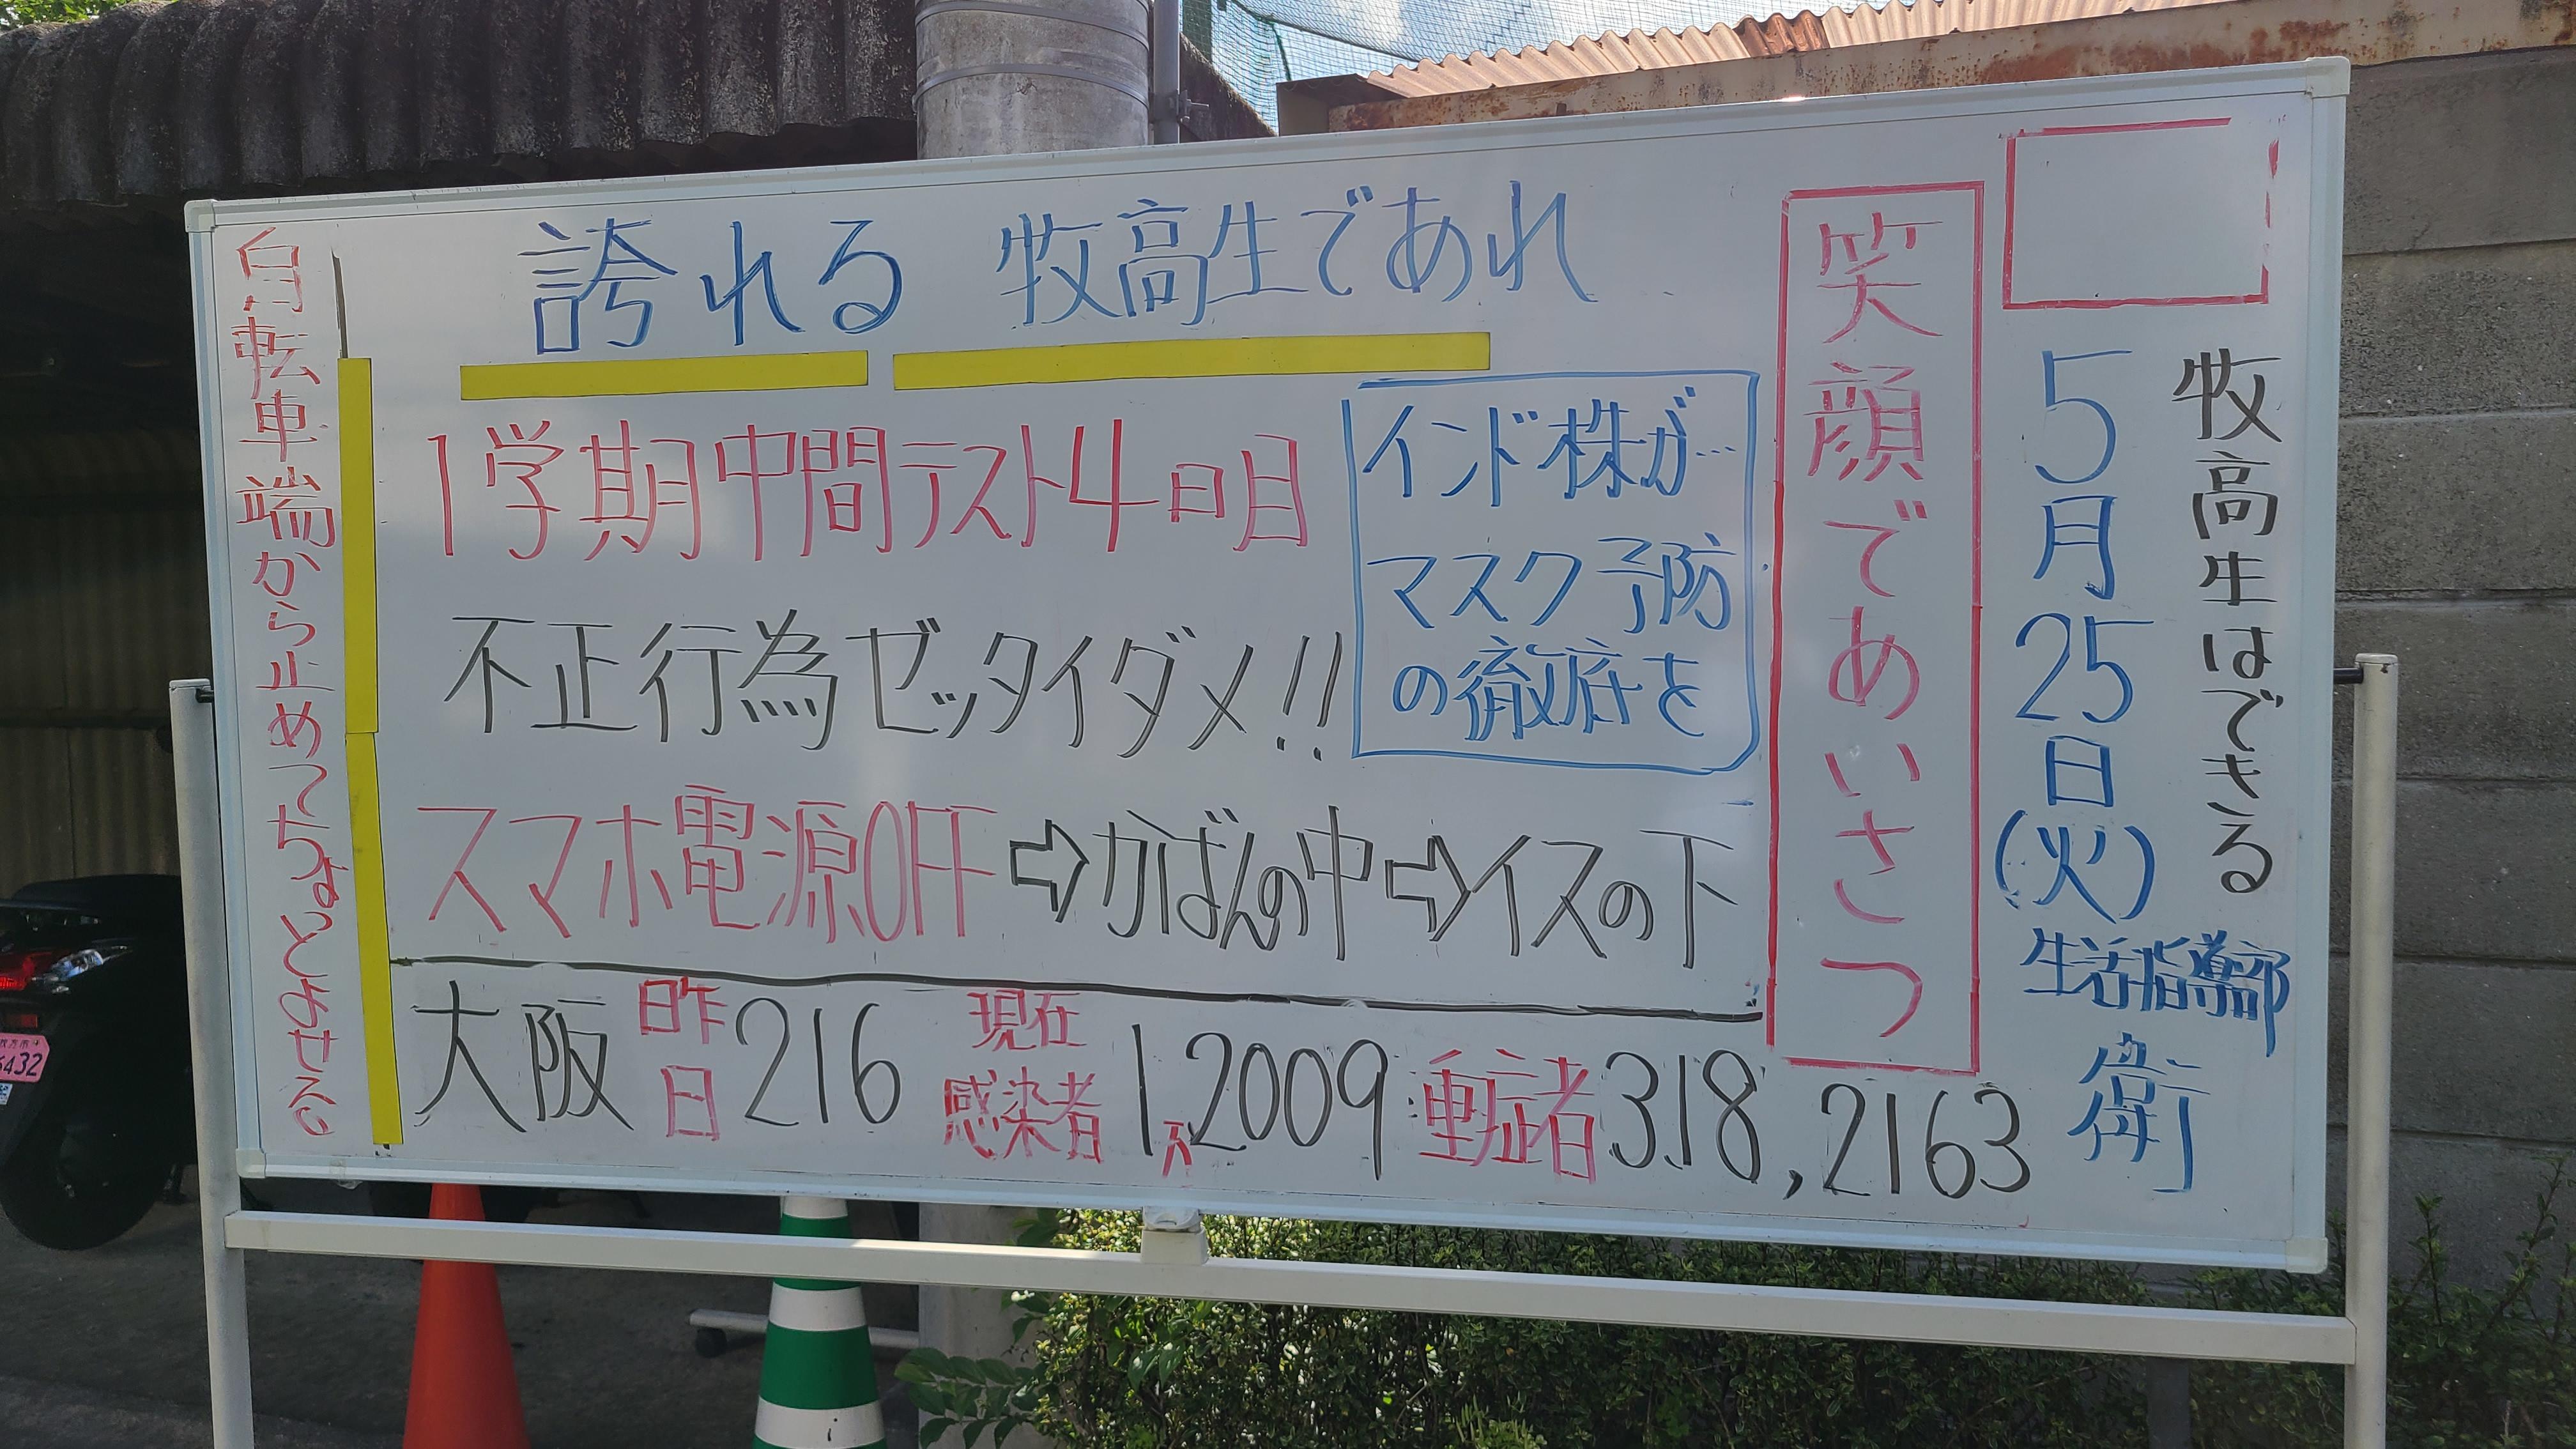 牧高生はできる
5月25日(火)
生活指導部
衛
笑顔であいさつ
誇れる 牧高生であれ
1学期中間テスト4日目
インド株が…
マスク予防
の徹底を
不正行為ゼッタイダメ!!
スマホ電源OFF⇨かばんの中⇨イスの下
大阪 昨日 216 現在感染者 1万2009 重症者 318,2163
自転車端から止めてちょとよせる
6432